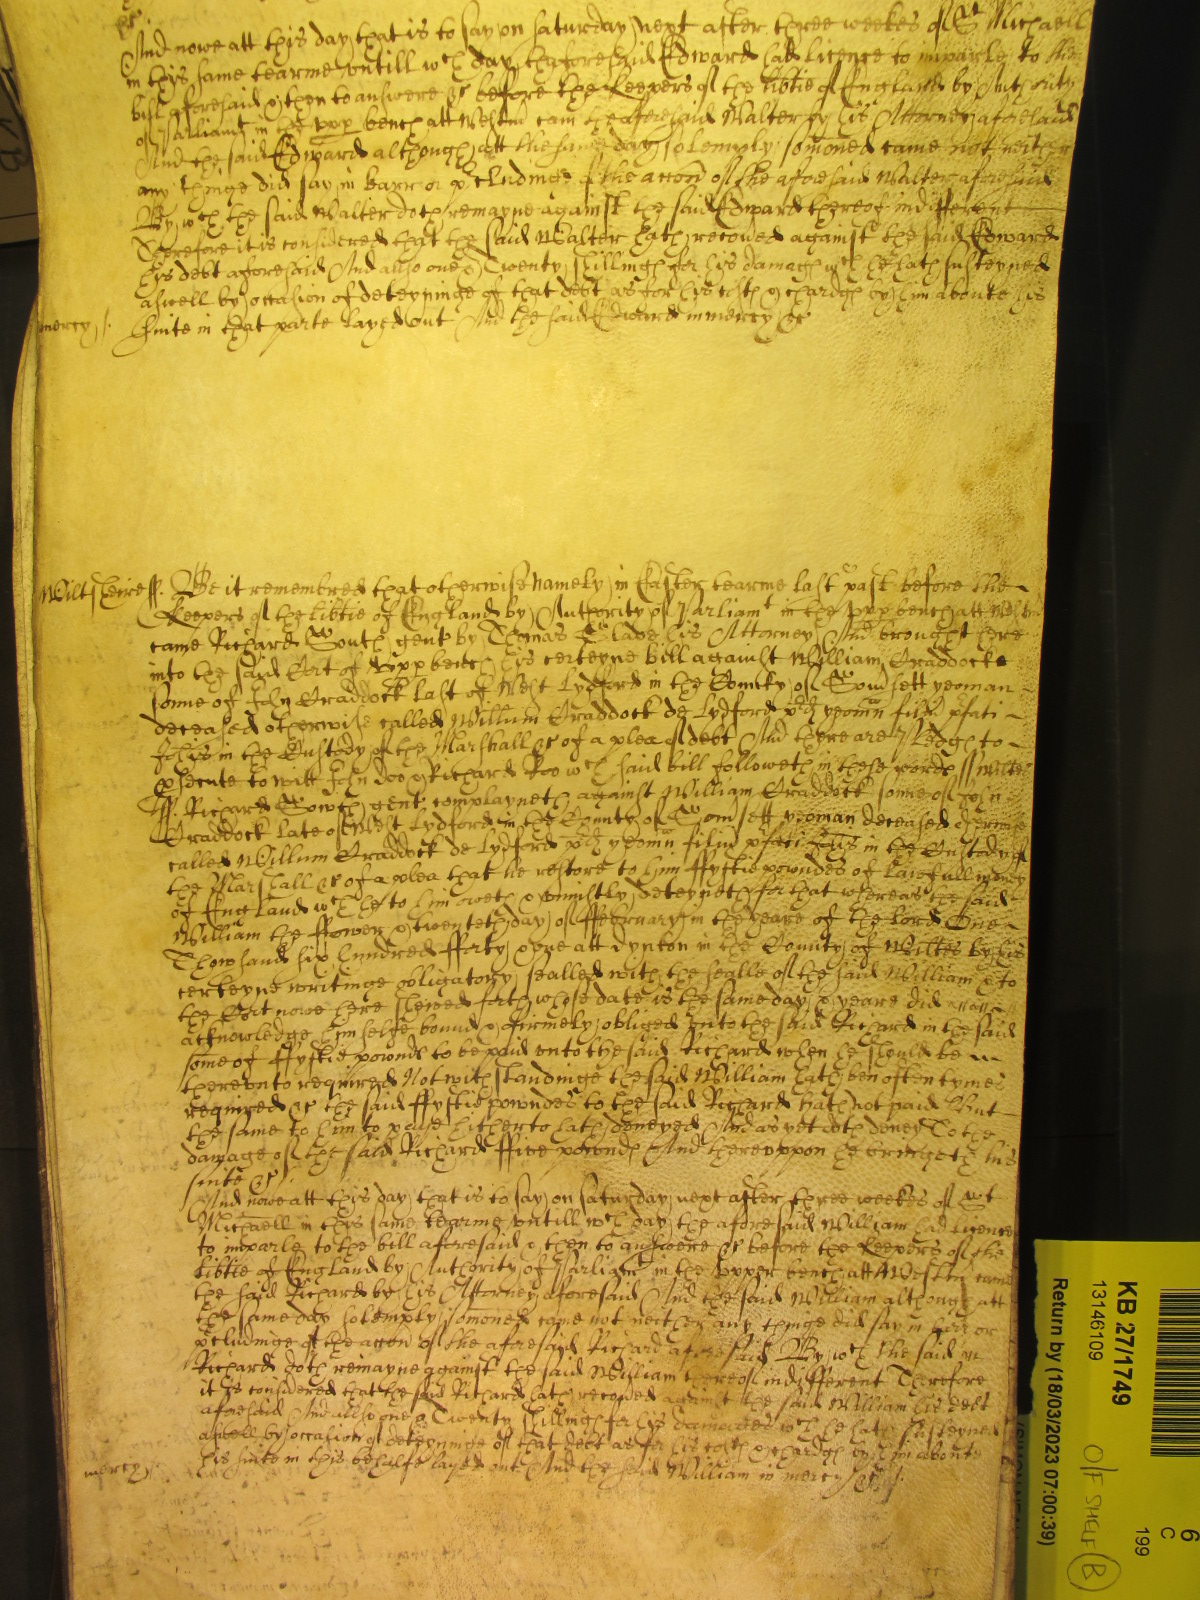 &c
And nowe att this day that is to say on Saturday next after three weekes of St Michaell
in this same tearme untill wch day the aforesaid Edward had licence to imparle to the
bill aforesaid & then to answere &c before the Keepers of the libtie of England by Authority
of Parliamt in the upp bench att Westm cam the aforesaid Walter by his Attorney aforesaid
And the said Edward although att the same day solemply somoned came not neither
any thinge did say in barr or pcludinge of the accon of the aforesaid Walter aforesaid
By wch the said Walter doth remayne against the said Edward thereof indifferent
Therefore it is considered that the said Walter hath recoued against the said Edward
his debt aforesaid And also one & Twenty shillings for his damags wch he hath susteyned
aswell by occasion of deteyninge of that debt as for his costs & chardgs by him aboute his
mercy suite in that parte layed out And the said Edward in mercy &c
Wiltsheire ss. Be it remembred that otherwise namely in Easter tearme last past before the
Keepers of the libtie of England by Authority of Parliamt in the upp bench att Westm
came Richard South gent by Thomas Slade his Attorney And brought here
into the said Cort of upp bench his certeyne bill against William Craddocke
sonne of John Craddock last of West Lydford in the County of Somsett yeoman
deceased otherwise called Willum Craddock de Lydford pd yeomn filiu pfati
Johis in the Custody of the Marshall &c of a plea of debt And there are Pledgs to
psecute to witt John Doo & Richard Roo wch said bill followeth in these words ss Wiltes
ss. Richard Sowth gent complayneth against William Craddock sonne of John
Craddock late of West Lydford in the County of Somsett yeoman deceased otherwise
called Willum Craddock de Lydford pd yeomn filiu pfati Johis in the Custody of
the Marshall &c of a plea that he restore to him ffyftie powndes of lawfull money
of England wch he to him oweth & uniustly deteyneth for that whereas the said
William the ffower & twenteth day of ffebruary in the yeare of the lord One
Thowsand six hundred fforty & one att Dynton in the County of Wiltes by his
certeyne writinge obligatory sealled with the sealle of the said William & to
the Cort nowe here shewed forth whose date is the same day & yeare did
acknowledge himselfe bound & firmely obliged unto the said Richard in the said
some of ffyftie pownds to be paid unto the said Richard when he should be
thereunto required Notwithstandinge the said William hath ben often tymes
required &c the said ffyftie powndes to the said Richard hath not paid But
the same to him to paye hitherto hath denyed And as yet doth deney To the
damage of the said Richard ffive pownds And thereuppon he bringeth his
suite &c
And nowe att this day that is to say on Saturday next after three weekes of St
Michaell in this same tearme untill wch day the aforesaid William had licence
to imparle to the bill aforesaid & then to answere &c before the Keepers of the
libtie of England by Authority of Parliamt in the Upper bench att Westm came
the said Richard by his Attorney aforesaid And the said William although att
the same day solemply somoned came not neither any thinge did say in barr or
pcludinge of the accon of the aforesaid Richard aforesaid By wch the said
Richard doth remayne against the said William thereof indifferent Therefore
it is considered that the said Richard hath recoued against the said William his debt
aforesaid And also one & Twenty shillings for his damages wch he hath susteyned
aswell by occasion of deteyninge of that debt as for his costs & chardgs by him aboute
mercy his suite in this behalfe layed out And the said William in mercy &c
KB 27/1749
13146109
Return by (18/03/2023 07:00:39)
O/F SHELF B
6
C
199